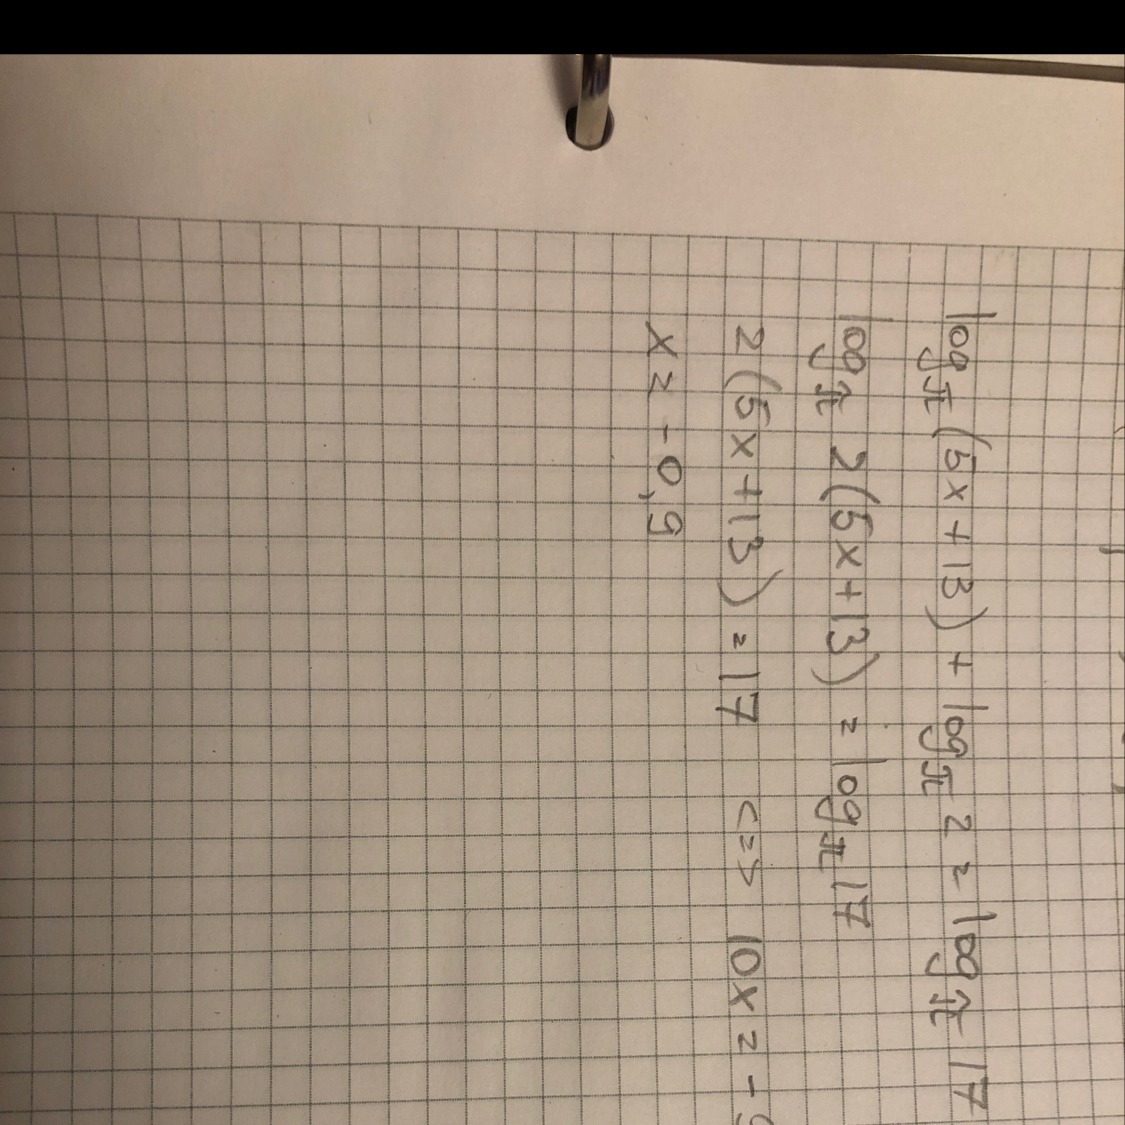 log π (5x + 13) + log π 2 = log π 17
log π 2(5x + 13) = log π 17
2(5x + 13) = 17 <=> 10x = -9
x = -0,9